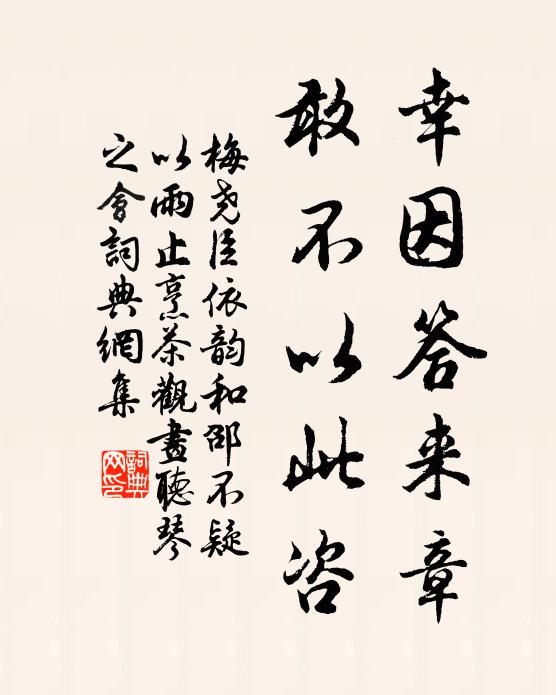 幸因答来章
敢不以此咨
梅尧臣依韵和邵不疑
以雨止烹茶觀畫聽琴
之會詞典網集
詞典
网印